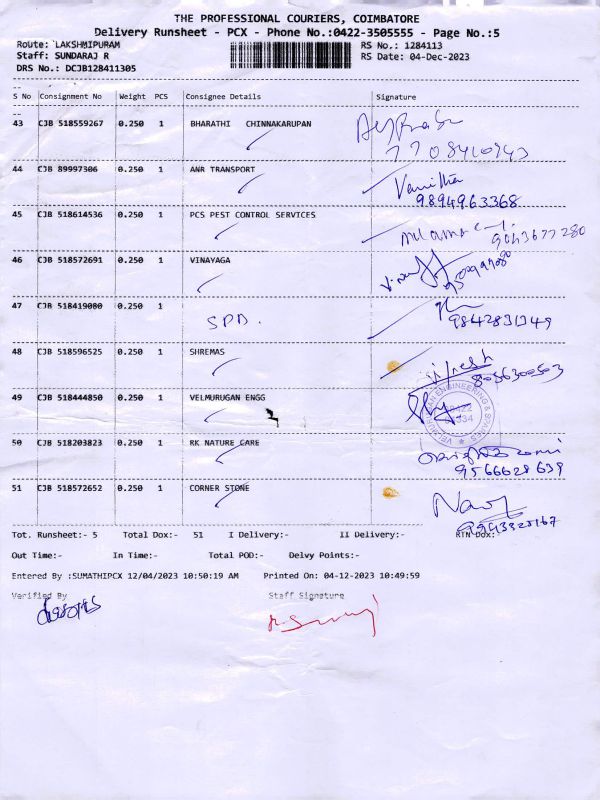 THE PROFESSIONAL COURIERS, COIMBATORE
Delivery Runsheet - PCX - Phone No.:0422-3505555 - Page No.:5
Route: LAKSHMIPURAM RS No.: 1284113
Staff: SUNDARAJ R RS Date: 04-Dec-2023
DRS No.: DCJB128411305
S No Consignment No Weight PCS Consignee Details Signature
43 CJB 518559267 0.250 1 BHARATHI CHINNAKARUPAN
7708410943
44 CJB 89997306 0.250 1 ANR TRANSPORT Vanitha
9894963368
45 CJB 518614536 0.250 1 PCS PEST CONTROL SERVICES
9043677280
46 CJB 518572691 0.250 1 VINAYAGA
47 CJB 518419080 0.250 1 SPD.
9842831349
48 CJB 518596525 0.250 1 SHREMAS
8056300503
49 CJB 518444850 0.250 1 VELMURUGAN ENGG
VELMURUGAN ENGINEERING & SPARES
50 CJB 518203823 0.250 1 RK NATURE CARE
9566628639
51 CJB 518572652 0.250 1 CORNER STONE
Tot. Runsheet:- 5 Total Dox:- 51 I Delivery:- II Delivery:- RTN Dox:
Out Time:- In Time:- Total POD:- Delvy Points:-
Entered By :SUMATHIPCX 12/04/2023 10:50:19 AM Printed On: 04-12-2023 10:49:59
Verified By Staff Signature